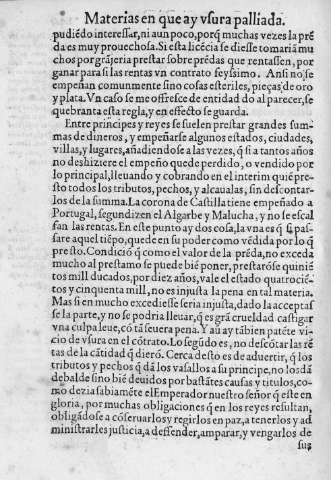 Materias en que ay vsura palliada.
pudiédo interessar, ni aun poco, porq̃ muchas vezes la pré
da es muy prouechosa. Si esta licécia se diesse tomariá mu
chos por grãjeria prestar sobre prédas que rentassen, por
ganar para si las rentas vn contrato feyssimo. Ansi no se
empeñan comunmente sino cosas esteriles, pieças de oro
y plata. Vn caso se me offresce de entidad do al parecer, se
quebranta esta regla, y en effecto se guarda.
Entre principes y reyes se suelen prestar grandes sum-
mas de dineros, y empeñarse algunos estados, ciudades,
villas, y lugares, añadiendose a las vezes, q̃ si a tantos años
no deshiziere el empeño quede perdido, o vendido por
lo principal, lleuando y cobrando en el interim quié pre-
sto todos los tributos, pechos, y alcaualas, sin descontar-
los de la summa. La corona de Castilla tiene empeñado a
Portugal, segun dizen el Algarbe y Malucha, y no se escal
fan las rentas. En este punto ay dos cosa, la vna es q̃ si pas-
sare aquel tiépo, quede en su poder como védida por lo q̃
presto. Condició q̃ como el valor de la préda, no exceda
mucho al prestamo se puede bié poner, prestaróse quinié
tos mill ducados, por diez años, vale el estado quatrocié-
tos y cinquenta mill, no es injusta la pena en tal materia.
Mas si en mucho excediesse seria injusta, dado la acceptas
se la parte, y no se podria lleuar, q̃ es grã crueldad castigar
vna culpa leue, có tá seuera pena. Y aú ay tábien patéte vi-
cio de vsura en el cótrato. Lo segúdo es, no descótar las ré
tas de la cátidad q̃ dieró. Cerca desto es de aduertir, q̃ los
tributos y pechos q̃ dá los vasallos a su principe, no los dá
debalde sino bié deuidos por bastátes causas y titulos, co-
mo dezia sabiaméte el Emperador nuestro señor q̃ este en
gloria, por muchas obligaciones q̃ en los reyes resultan,
obligádose a cóseruarlos y regirlos en paz, a tenerlos y ad
ministrarles justicia, a deffender, amparar, y vengarlos de
sus